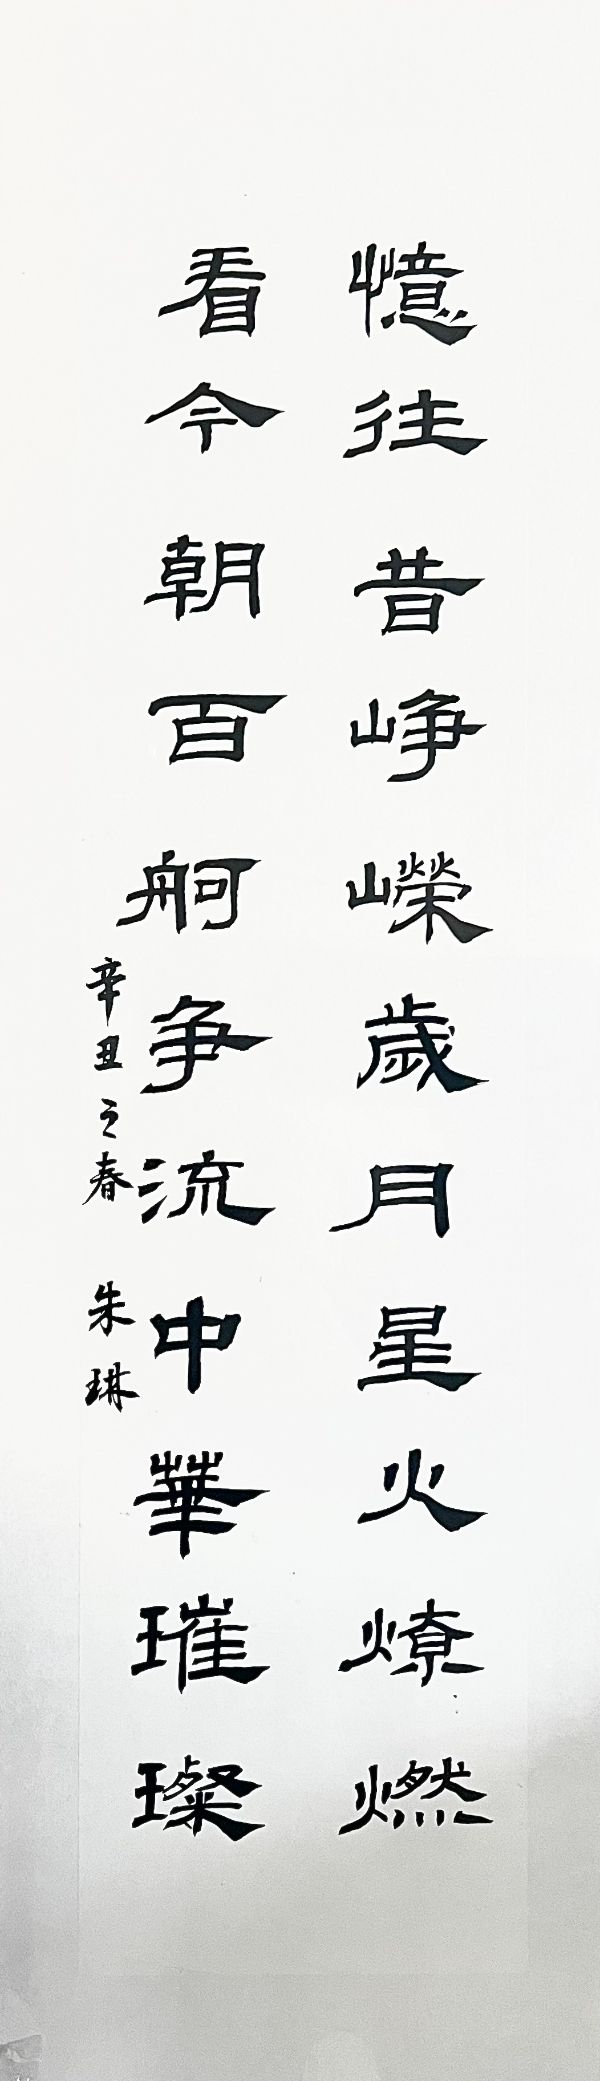 憶往昔崢嶸歲月星火燎燃
看今朝百舸争流中華璀璨
辛丑之春 朱琳